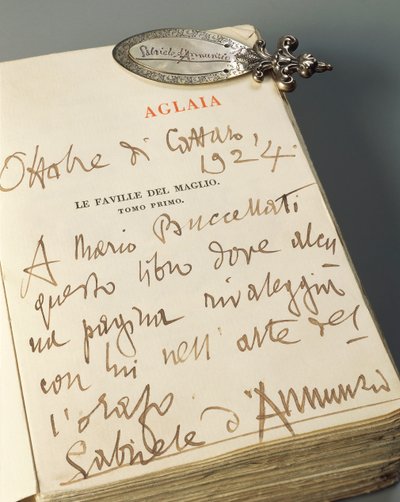 Gabriele d'Annunzio
AGLAIA
Ottobre di Cattaro,
1924.
LE FAVILLE DEL MAGLIO.
TOMO PRIMO.
A Mario Buccellati
questo libro dove alcu
na pagina rivaleggia
con lui nell'arte del
l'orafo.
Gabriele d'Annunzio